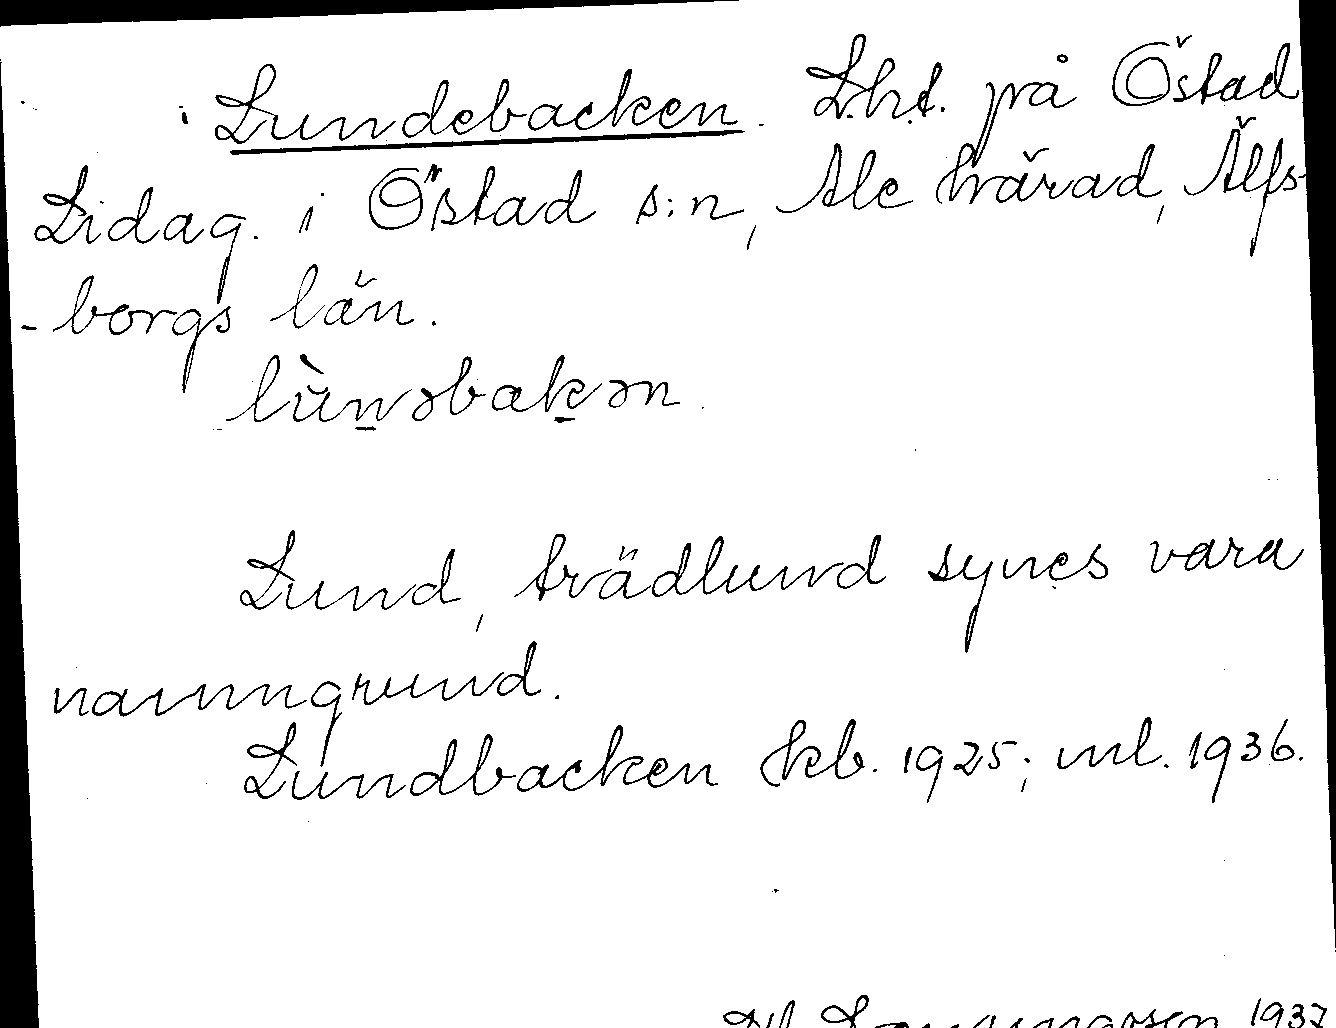 Lundebacken. Lht. på Östad
Lidag. i Östad s:n, Ale härad, Älfs-
-borgs län.
lùnəbakən
Lund, trädlund synes vara
namngrund.
Lundbacken kb. 1925; ml. 1936.
1937